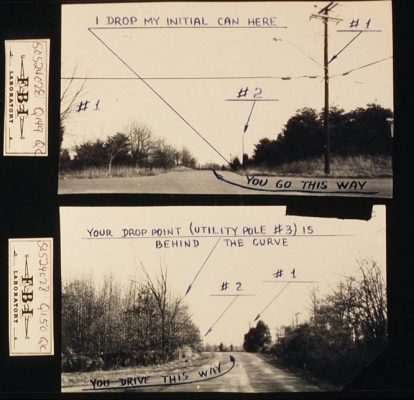 I DROP MY INITIAL CAN HERE
# 1
# 2
# 1
YOU GO THIS WAY
FBI
LABORATORY
YOUR DROP POINT (UTILITY POLE # 3) IS
BEHIND THE CURVE
# 2
# 1
YOU DRIVE THIS WAY
FBI
LABORATORY